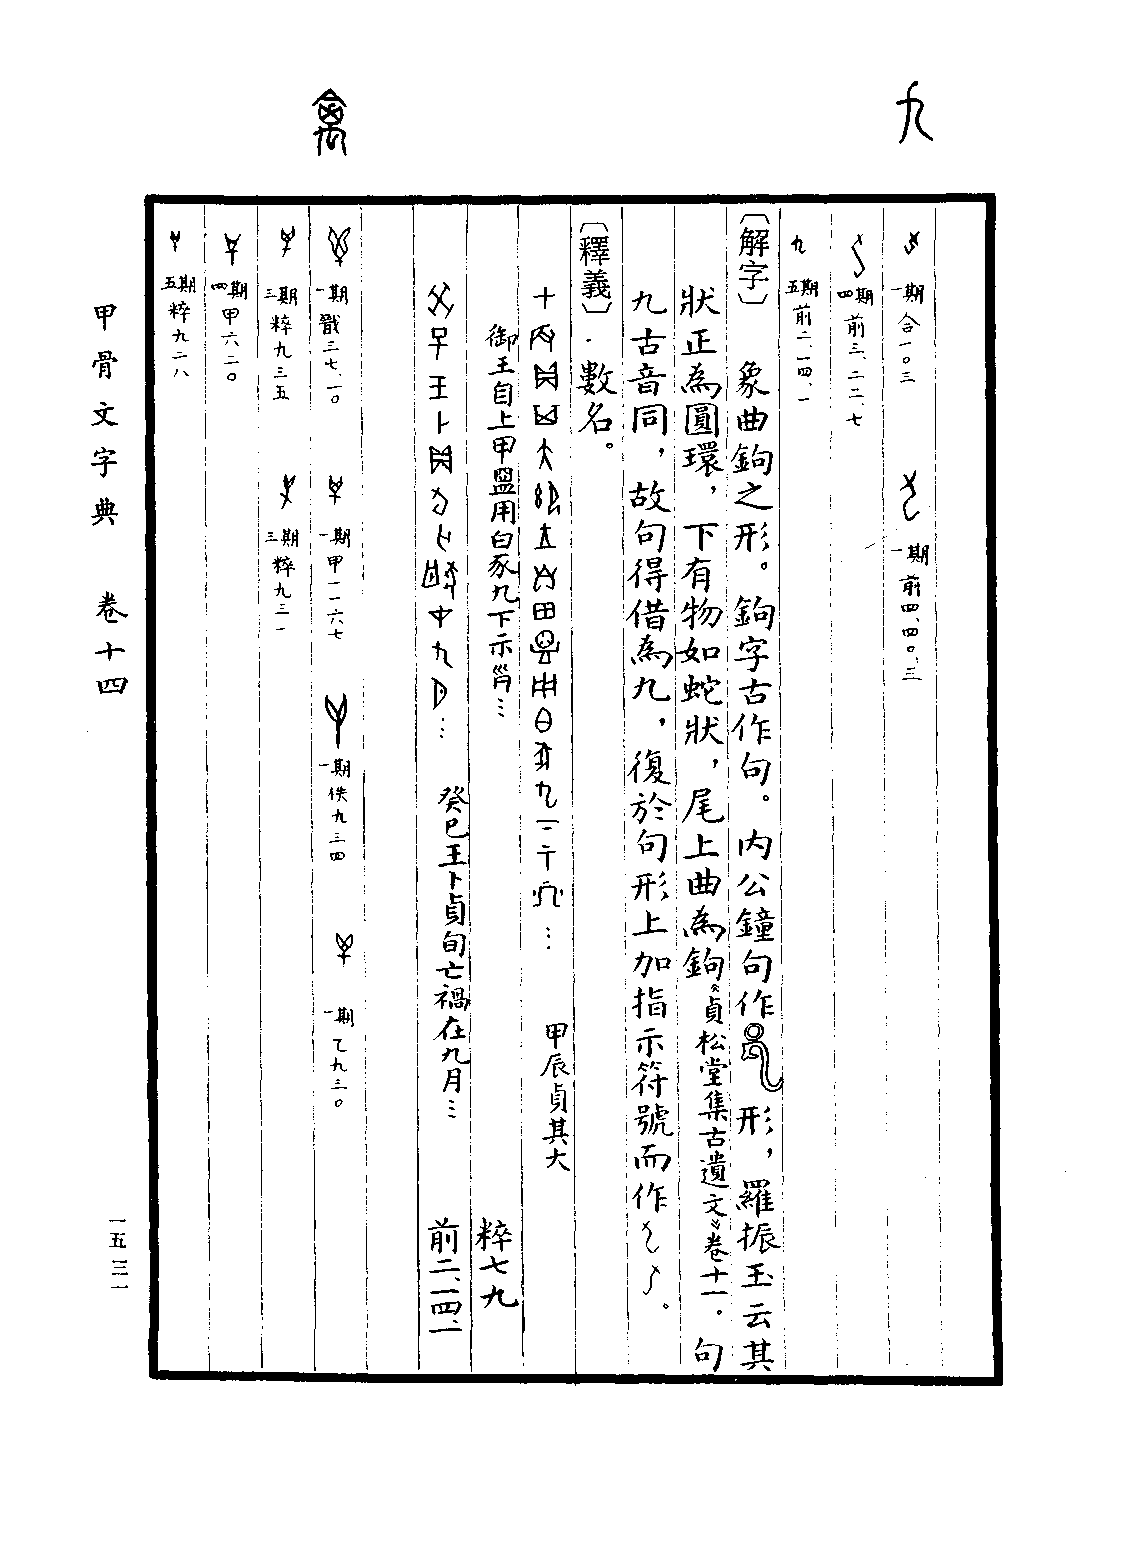 九
禽
一期 合一〇三
一期 前四、四〇、三
四期 前三、二二、七
五期 前二、一四、一
〔解字〕 象曲鉤之形。鉤字古作句。內公鐘句作 形，羅振玉云其
狀正為圓環，下有物如蛇狀，尾上曲為鉤《貞松堂集古遺文》卷十一。句
九古音同，故句得借為九，復於句形上加指示符號而作 。
〔釋義〕．數名。
… 甲辰貞其大
御王自上甲盟用白豕九下示 … 粹七九
… 癸巳王卜貞旬亡禍在九月… 前二、一四、一
一期 戬三七、一〇
一期 甲一一六七
一期 佚九三四
一期 乙九三〇
三期 粹九三五
三期 粹九三一
四期 甲六二〇
五期 粹九二八
甲骨文字典 卷十四
一五三一